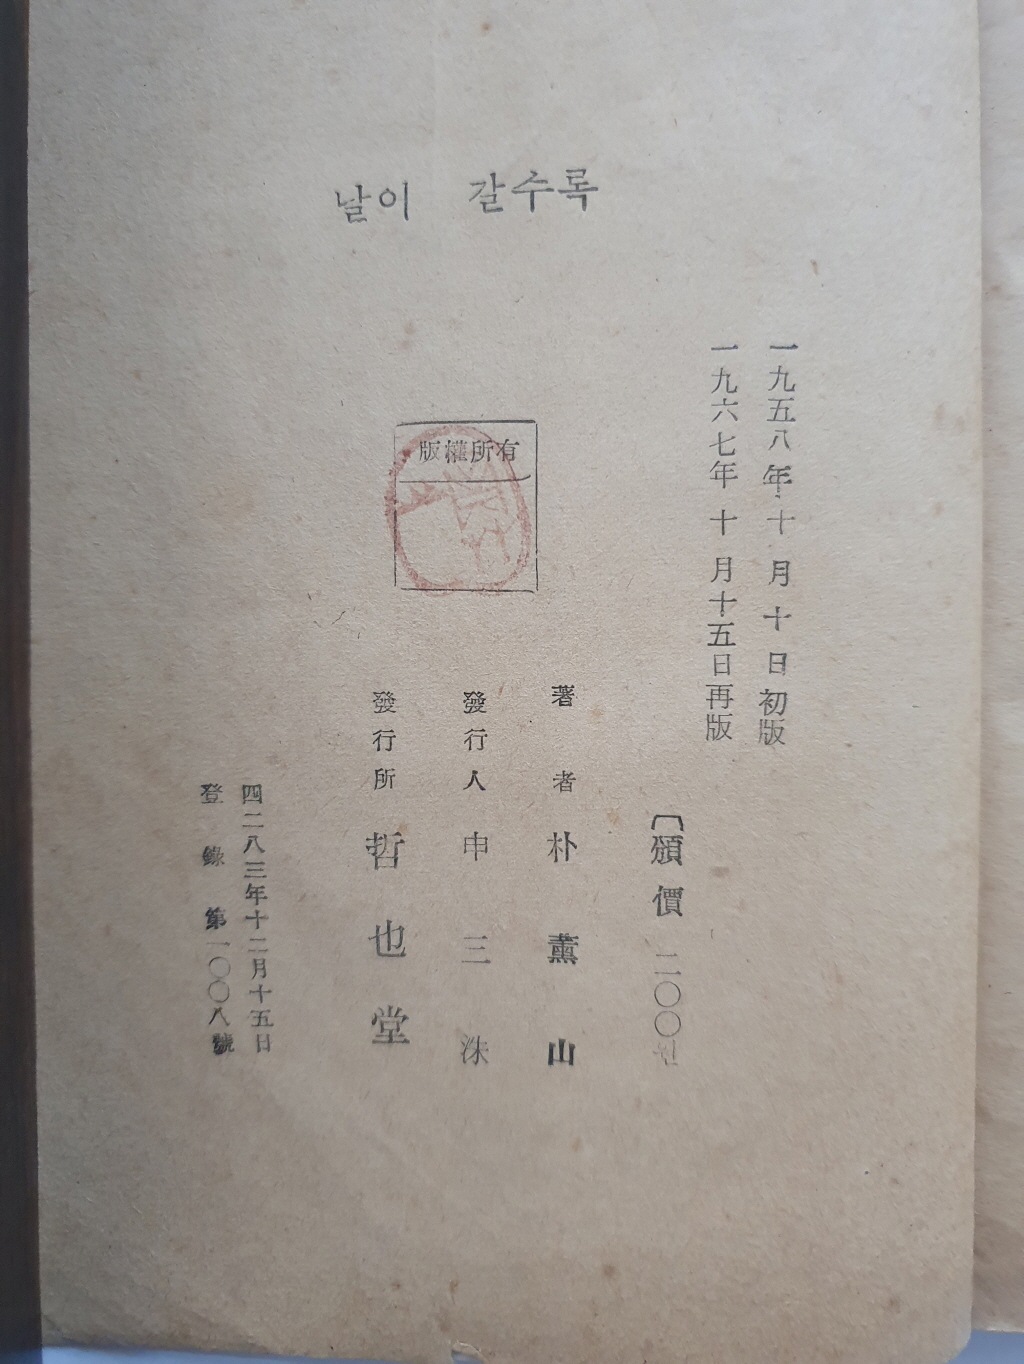 날이 갈수록
一九五八年十月十日初版
一九六七年十月十五日再版
版權所有
頒價 二〇〇
著者 朴薰山
發行人 申三洙
發行所 哲也堂
四二八三年十二月十五日
登錄 第一〇〇八號